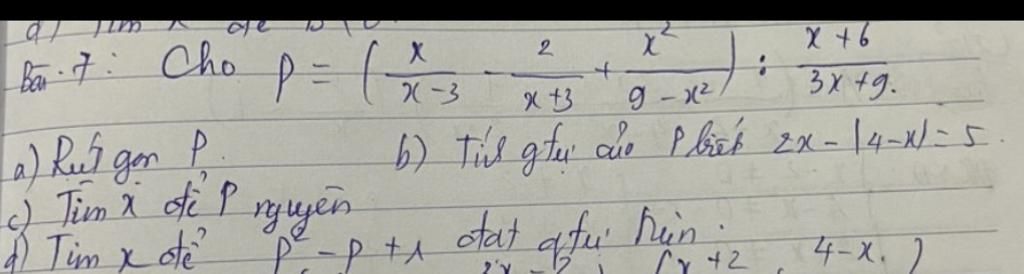 d) Tìm x để
Bài 7: Cho P = ( x/(x-3) - 2/(x+3) + x²/(9-x²) ) : (x+6)/(3x+9).
a) Rút gọn P. b) Tính gtrị của P biết 2x - |4-x| = 5.
c) Tìm x để P nguyên
d) Tìm x để P² - P + 1 đạt gtrị
x+2 4-x